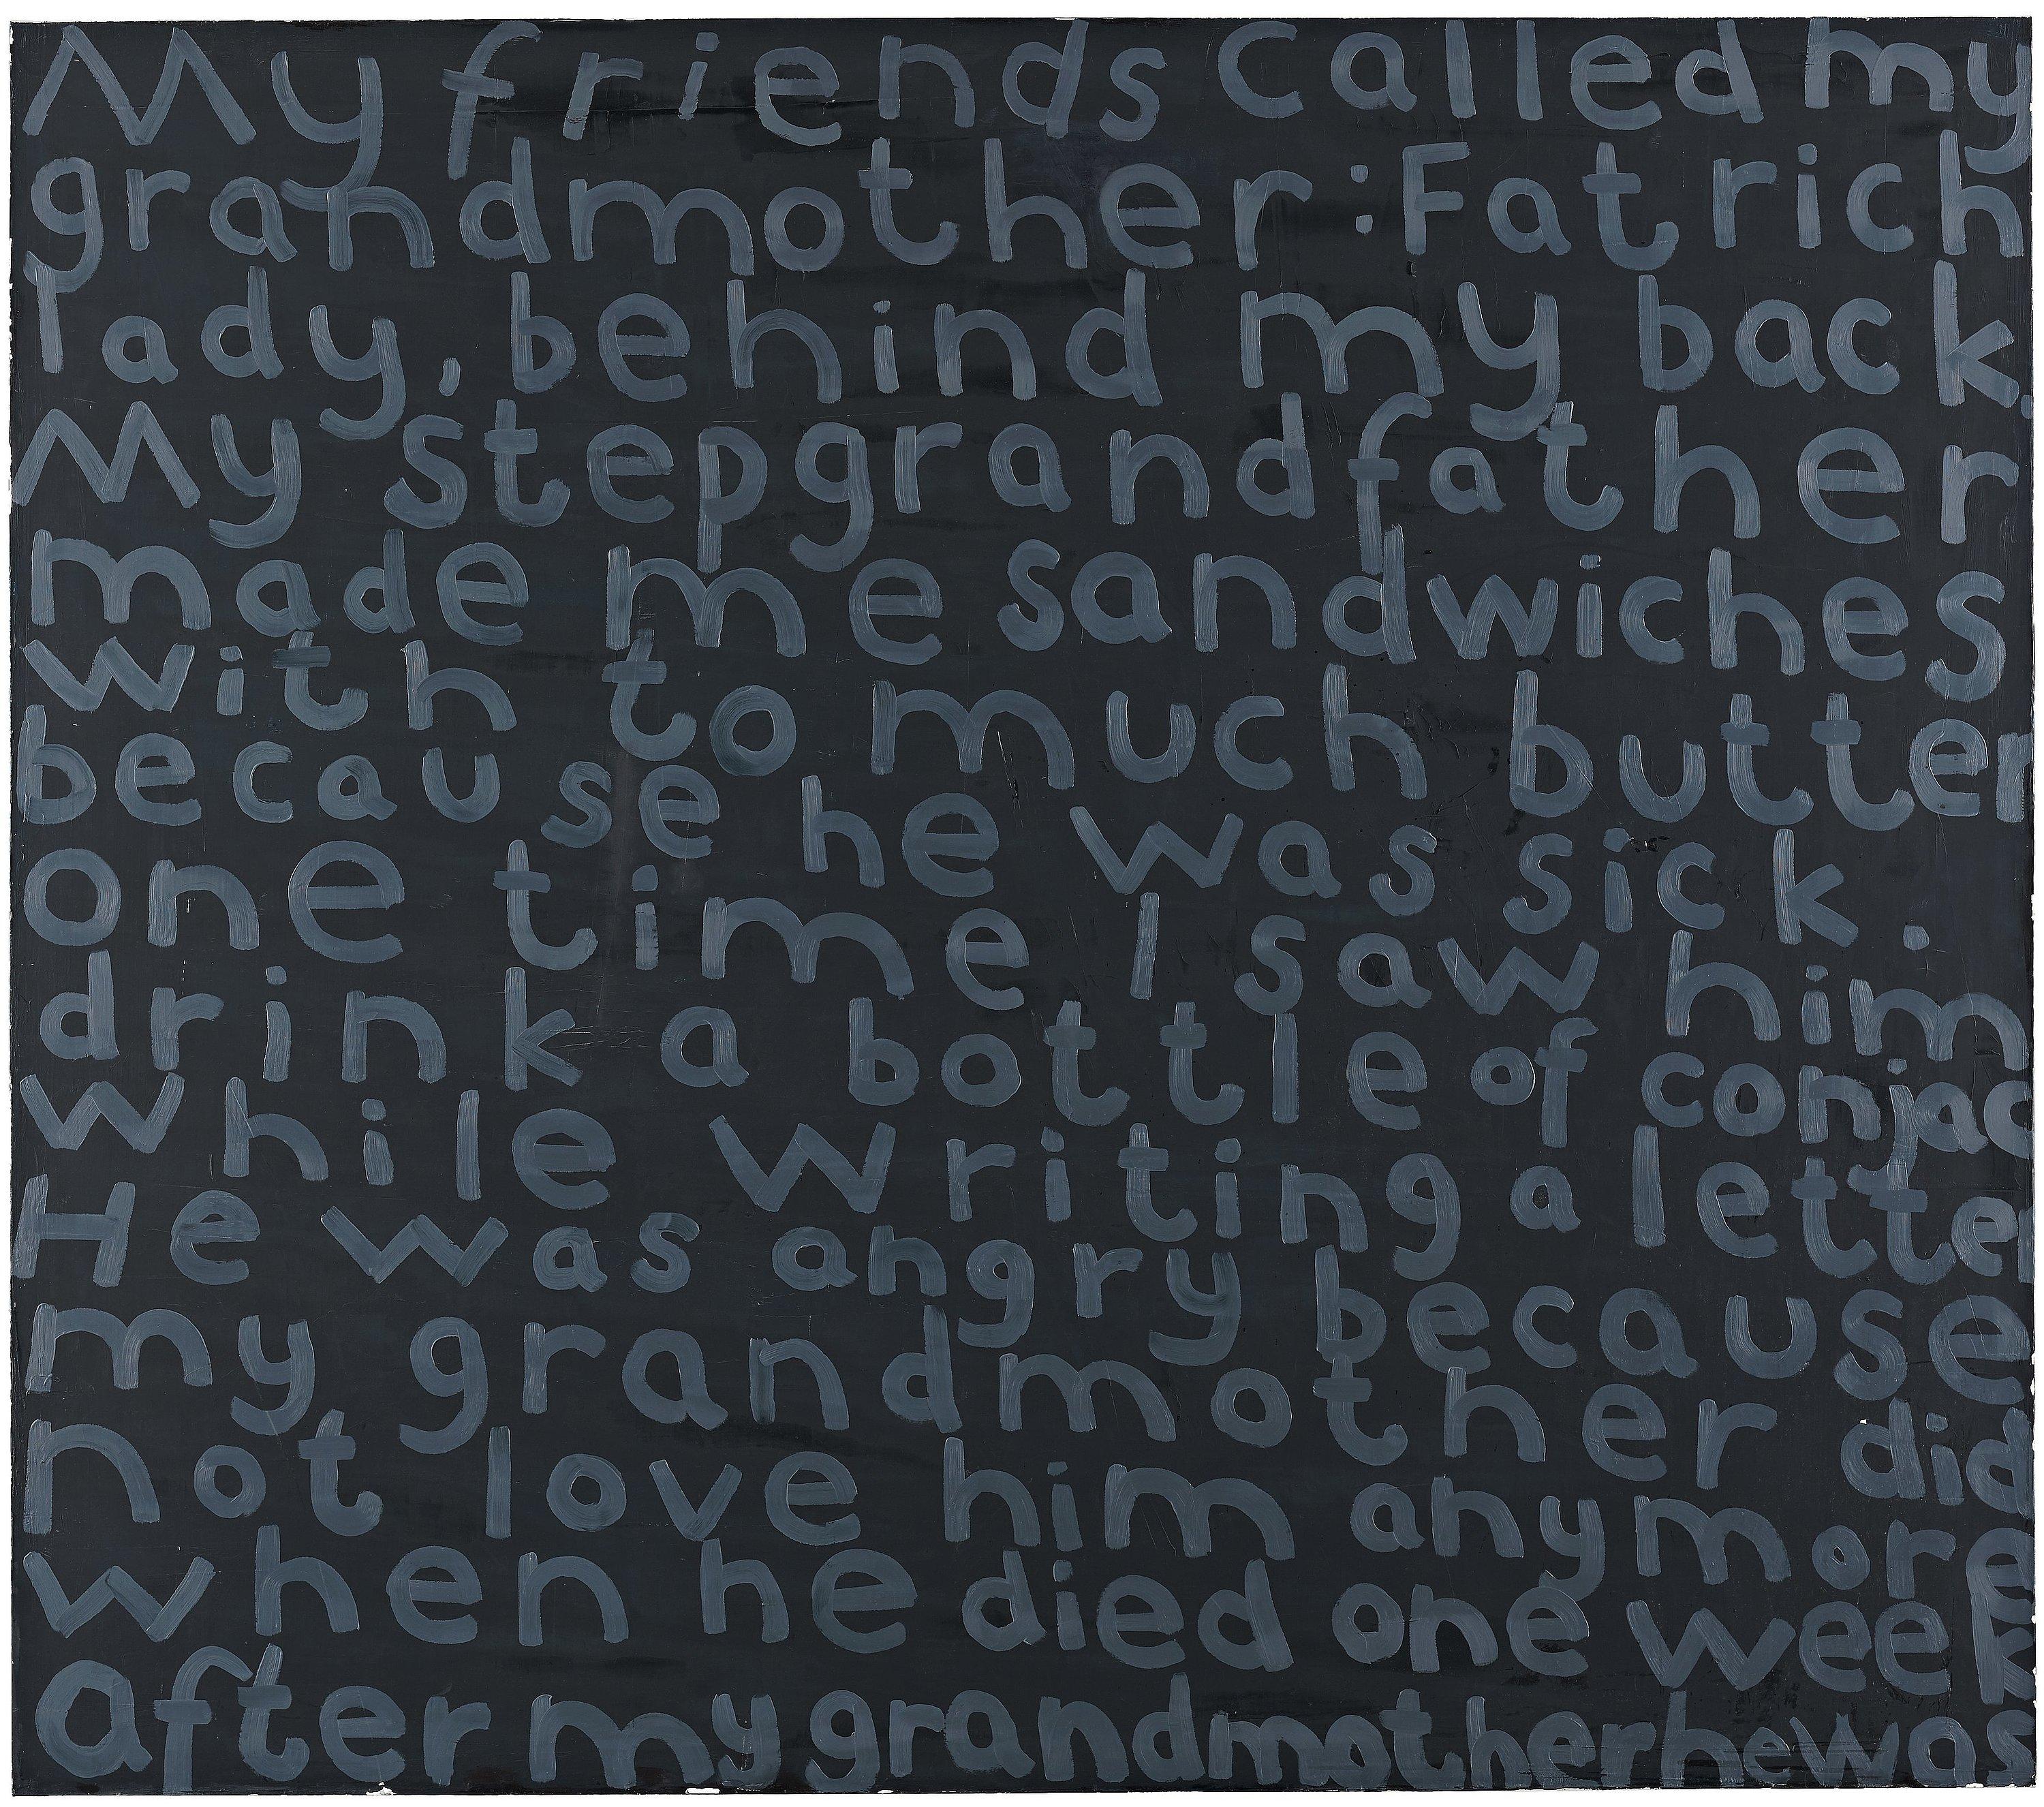 My friends called my
grandmother: Fat rich
lady, behind my back.
My stepgrandfather
made me sandwiches
with to much butter
because he was sick.
one time I saw him
drink a bottle of conjac
while writing a letter
He was angry because
my grandmother did
not love him anymore
when he died one week
after my grandmother he was